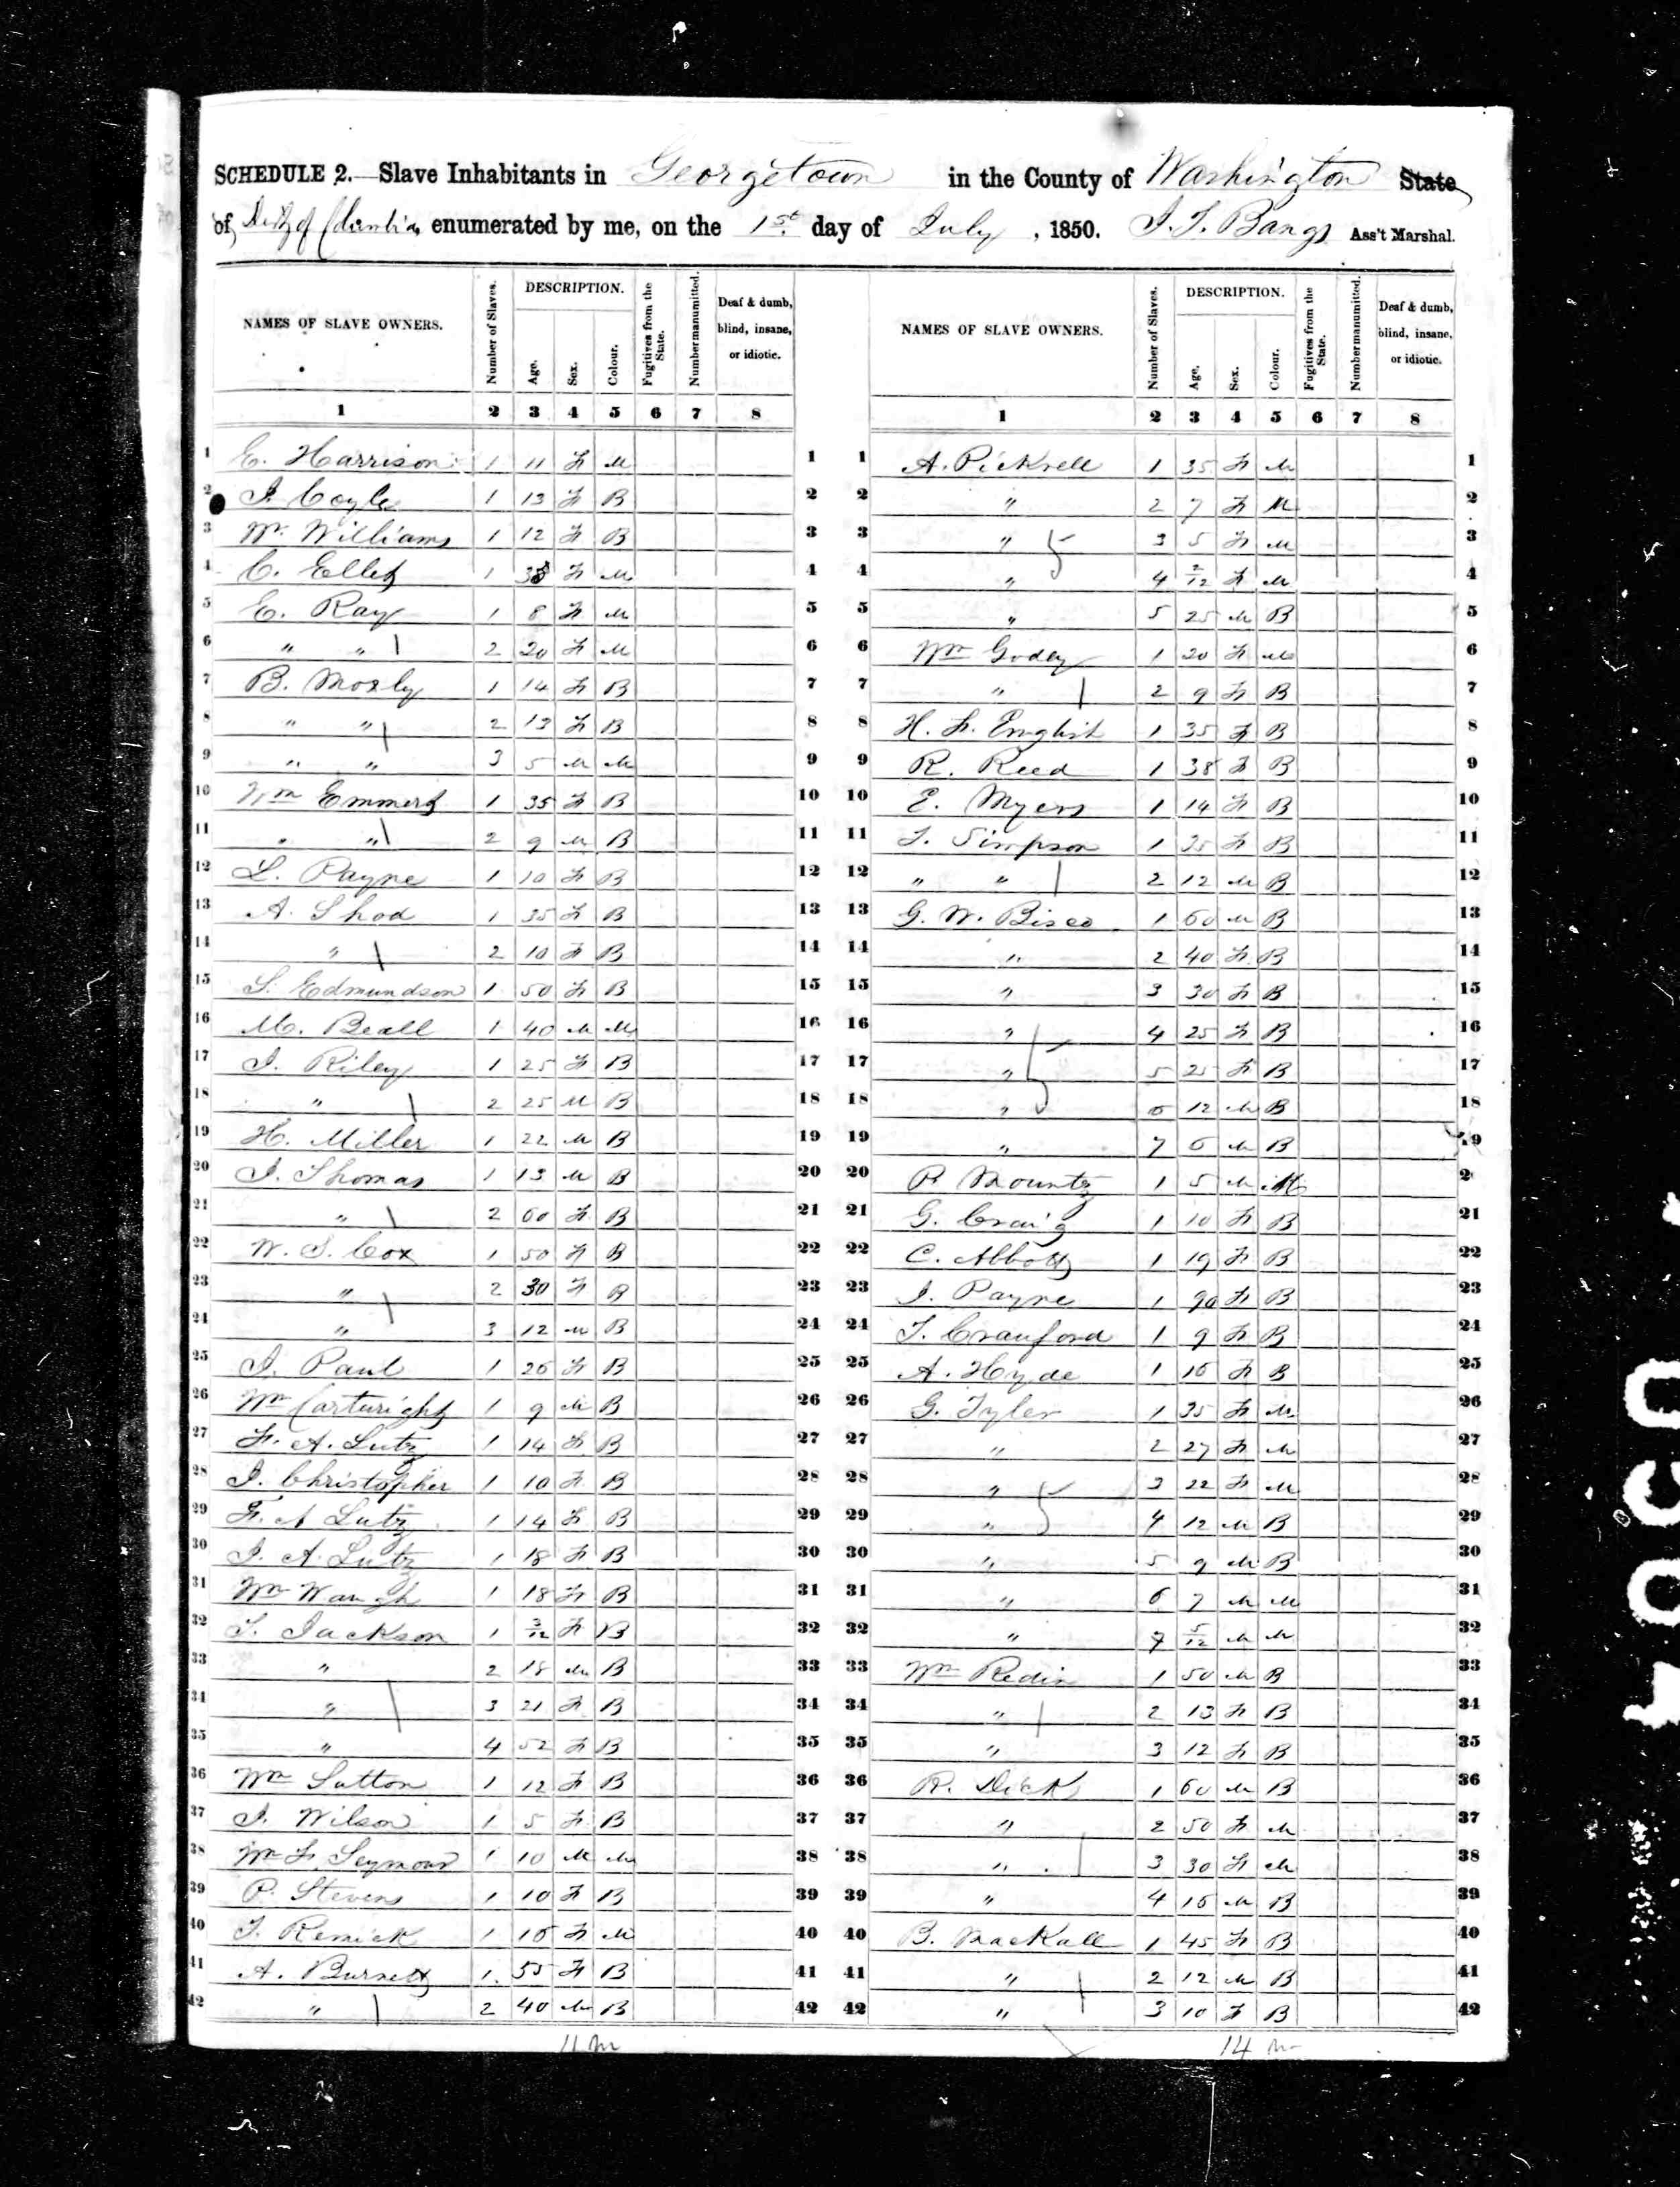 SCHEDULE 2. Slave Inhabitants in Georgetown in the County of Washington State
of Dist of Columbia enumerated by me, on the 1st day of July, 1850. Ass't Marshal.
NAMES OF SLAVE OWNERS. Number of Slaves. DESCRIPTION. Age. Sex. Colour. Fugitives from the State. Number manumitted. Deaf & dumb, blind, insane, or idiotic.
1 2 3 4 5 6 7 8
1 E. Harrison 1 11 F M 1
2 J. Coyle 1 13 F B 2
3 W. Williams 1 12 F B 3
4 C. 1 F M 4
5 E. Ray 1 8 F M 5
6 " " 2 20 F M 6
7 B. Mozly 1 14 F B 7
8 " " 2 13 F B 8
9 " " 3 5 M M 9
10 Wm Emmert 1 35 F B 10
11 " " 2 9 M B 11
12 L. Payne 1 10 F B 12
13 A. Shod 1 35 F B 13
14 " 2 10 F B 14
15 S. Edmundson 1 50 F B 15
16 M. Beall 1 40 M M 16
17 J. Riley 1 25 F B 17
18 " 2 25 M B 18
19 H. Miller 1 22 M B 19
20 J. Thomas 1 13 M B 20
21 " 2 60 F B 21
22 W. S. Cox 1 50 F B 22
23 " 2 30 F B 23
24 " 3 12 M B 24
25 J. Paul 1 26 F B 25
26 Wm Cartwright 1 9 M B 26
27 F. A. Lutz 1 14 F B 27
28 J. Christopher 1 10 F B 28
29 F. A Lutz 1 14 F B 29
30 J. A. Lutz 1 18 F B 30
31 Wm Waugh 1 18 F B 31
32 T. Jackson 1 3/12 F B 32
33 " 2 18 M B 33
34 " 3 21 F B 34
35 " 4 52 F B 35
36 Wm Sutton 1 12 F B 36
37 J. Wilson 1 5 F B 37
38 Wm F. Seymour 1 10 M M 38
39 P. Stevens 1 10 F B 39
40 T. Renick 1 16 F M 40
41 A. Burnett 1 55 F B 41
42 " 2 40 M B 42
11 m
NAMES OF SLAVE OWNERS. Number of Slaves. DESCRIPTION. Age. Sex. Colour. Fugitives from the State. Number manumitted. Deaf & dumb, blind, insane, or idiotic.
1 2 3 4 5 6 7 8
1 A. Pickrell 1 35 F M 1
2 " 2 7 F M 2
3 " 5 3 5 F M 3
4 " 4 2/12 F M 4
5 " 5 25 M B 5
6 Wm Godey 1 20 F M 6
7 " 2 9 F B 7
8 H. F. English 1 35 F B 8
9 R. Reed 1 38 F B 9
10 E. Myers 1 14 F B 10
11 T. Simpson 1 35 F B 11
12 " " 2 12 M B 12
13 G. W. Bisco 1 60 M B 13
14 " 2 40 F B 14
15 " 3 30 F B 15
16 " 4 25 F B 16
17 " 5 5 25 F B 17
18 " 6 12 M B 18
19 " 7 6 M B 19
20 R Mountz 1 5 M M 2
21 G. Craig 1 10 F B 21
22 C. Abbott 1 19 F B 22
23 J. Payne 1 F B 23
24 T. Crauford 1 9 F B 24
25 A. Hyde 1 16 F B 25
26 G. Tyler 1 35 F M 26
27 " 2 27 F M 27
28 " 5 3 22 F M 28
29 " 4 12 M B 29
30 " 5 9 M B 30
31 " 6 7 M M 31
32 " 7 5/12 M M 32
33 Wm Redin 1 50 M B 33
34 " 2 13 F B 34
35 " 3 12 F B 35
36 R. Dick 1 60 M B 36
37 " 2 50 F M 37
38 " 3 30 F M 38
39 " 4 16 M B 39
40 B. Mackall 1 45 F B 40
41 " 2 12 M B 41
42 " 3 10 F B 42
14 m